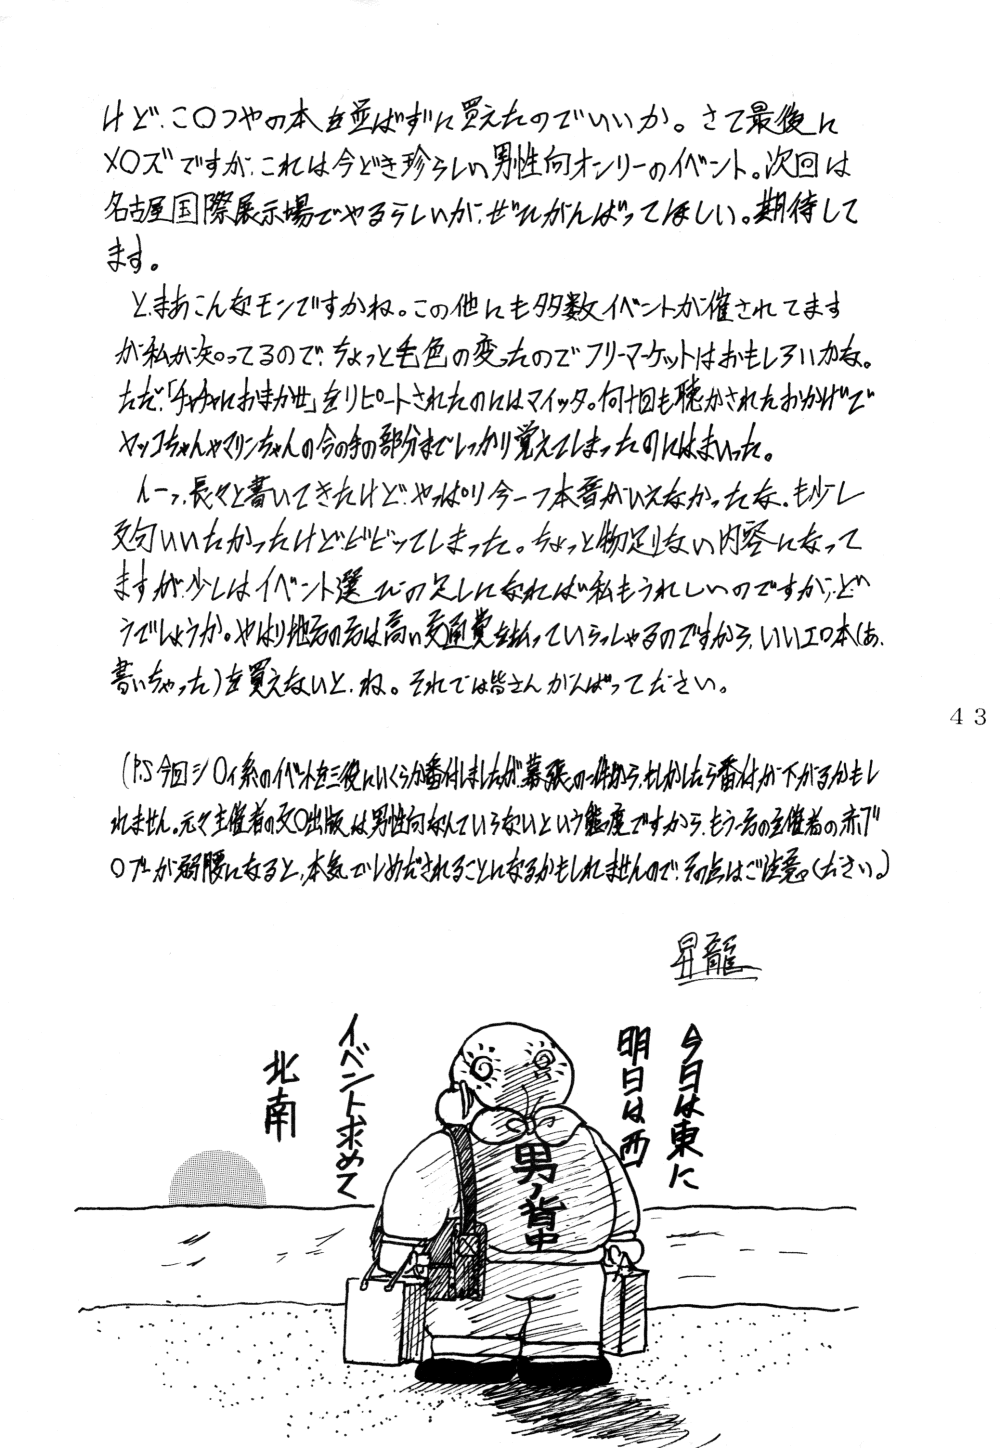 けど、こ〇つやの本を並ばずに買えたのでいいか。さて最後に
メ〇ズですが、これは今どき珍らしい男性向オンリーのイベント。次回は
名古屋国際展示場でやるらしいが、ぜひがんばってほしい。期待して
ます。
と、まあこんなモンですかね。この他にも多数イベントが催されてます
が私が知ってるので、ちょっと毛色の変ったのでフリーマーケットはおもしろいかな。
ただ、「チャチャにおまかせ」をリピートされたのにはマイッタ。何十回も聴かされたおかげで
ヤッコちゃんやマリンちゃんの合の手の部分までしっかり覚えてしまったのにはまいった。
んーっ、長々と書いてきたけど、やっぱり今一つ本音がいえなかったな。も少し
文句いいたかったけどビビッてしまった。ちょっと物足りない内容になって
ますが、少しはイベント選びの足しになれば私もうれしいのですが、ど
うでしょうか。やはり地方の方は高い交通費を払っていらっしゃるのですから、いいエロ本(あ、
書いちゃった)を買えないと、ね。それでは皆さんがんばってください。
43
(P.S 今回シ〇ィ系のイベントを三役にいくらか番付しましたが、幕張の一件から、もしかしたら番付が下がるかもし
れません。元々主催者の文〇出版は男性向なんていらないという態度ですから、もう一方の主催者の赤ブ
〇ブーが弱腰になると、本気でしめだされることになるかもしれませんので、その点はご注意ください。)
昇龍
今日は東に
明日は西
イベント求めて
北南
男ノ背中